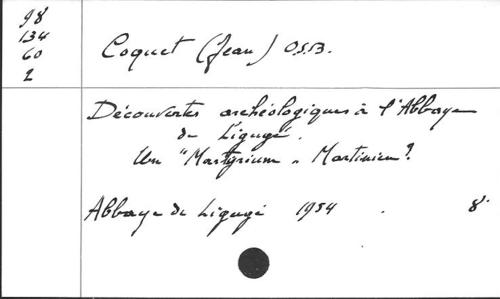 98
134
60
2
Coquet (Jean) O.S.B.
Découvertes archéologiques à l'Abbaye
de Ligugé.
Un "Martyrium" Martinien?
Abbaye de Ligugé 1954 . 8°